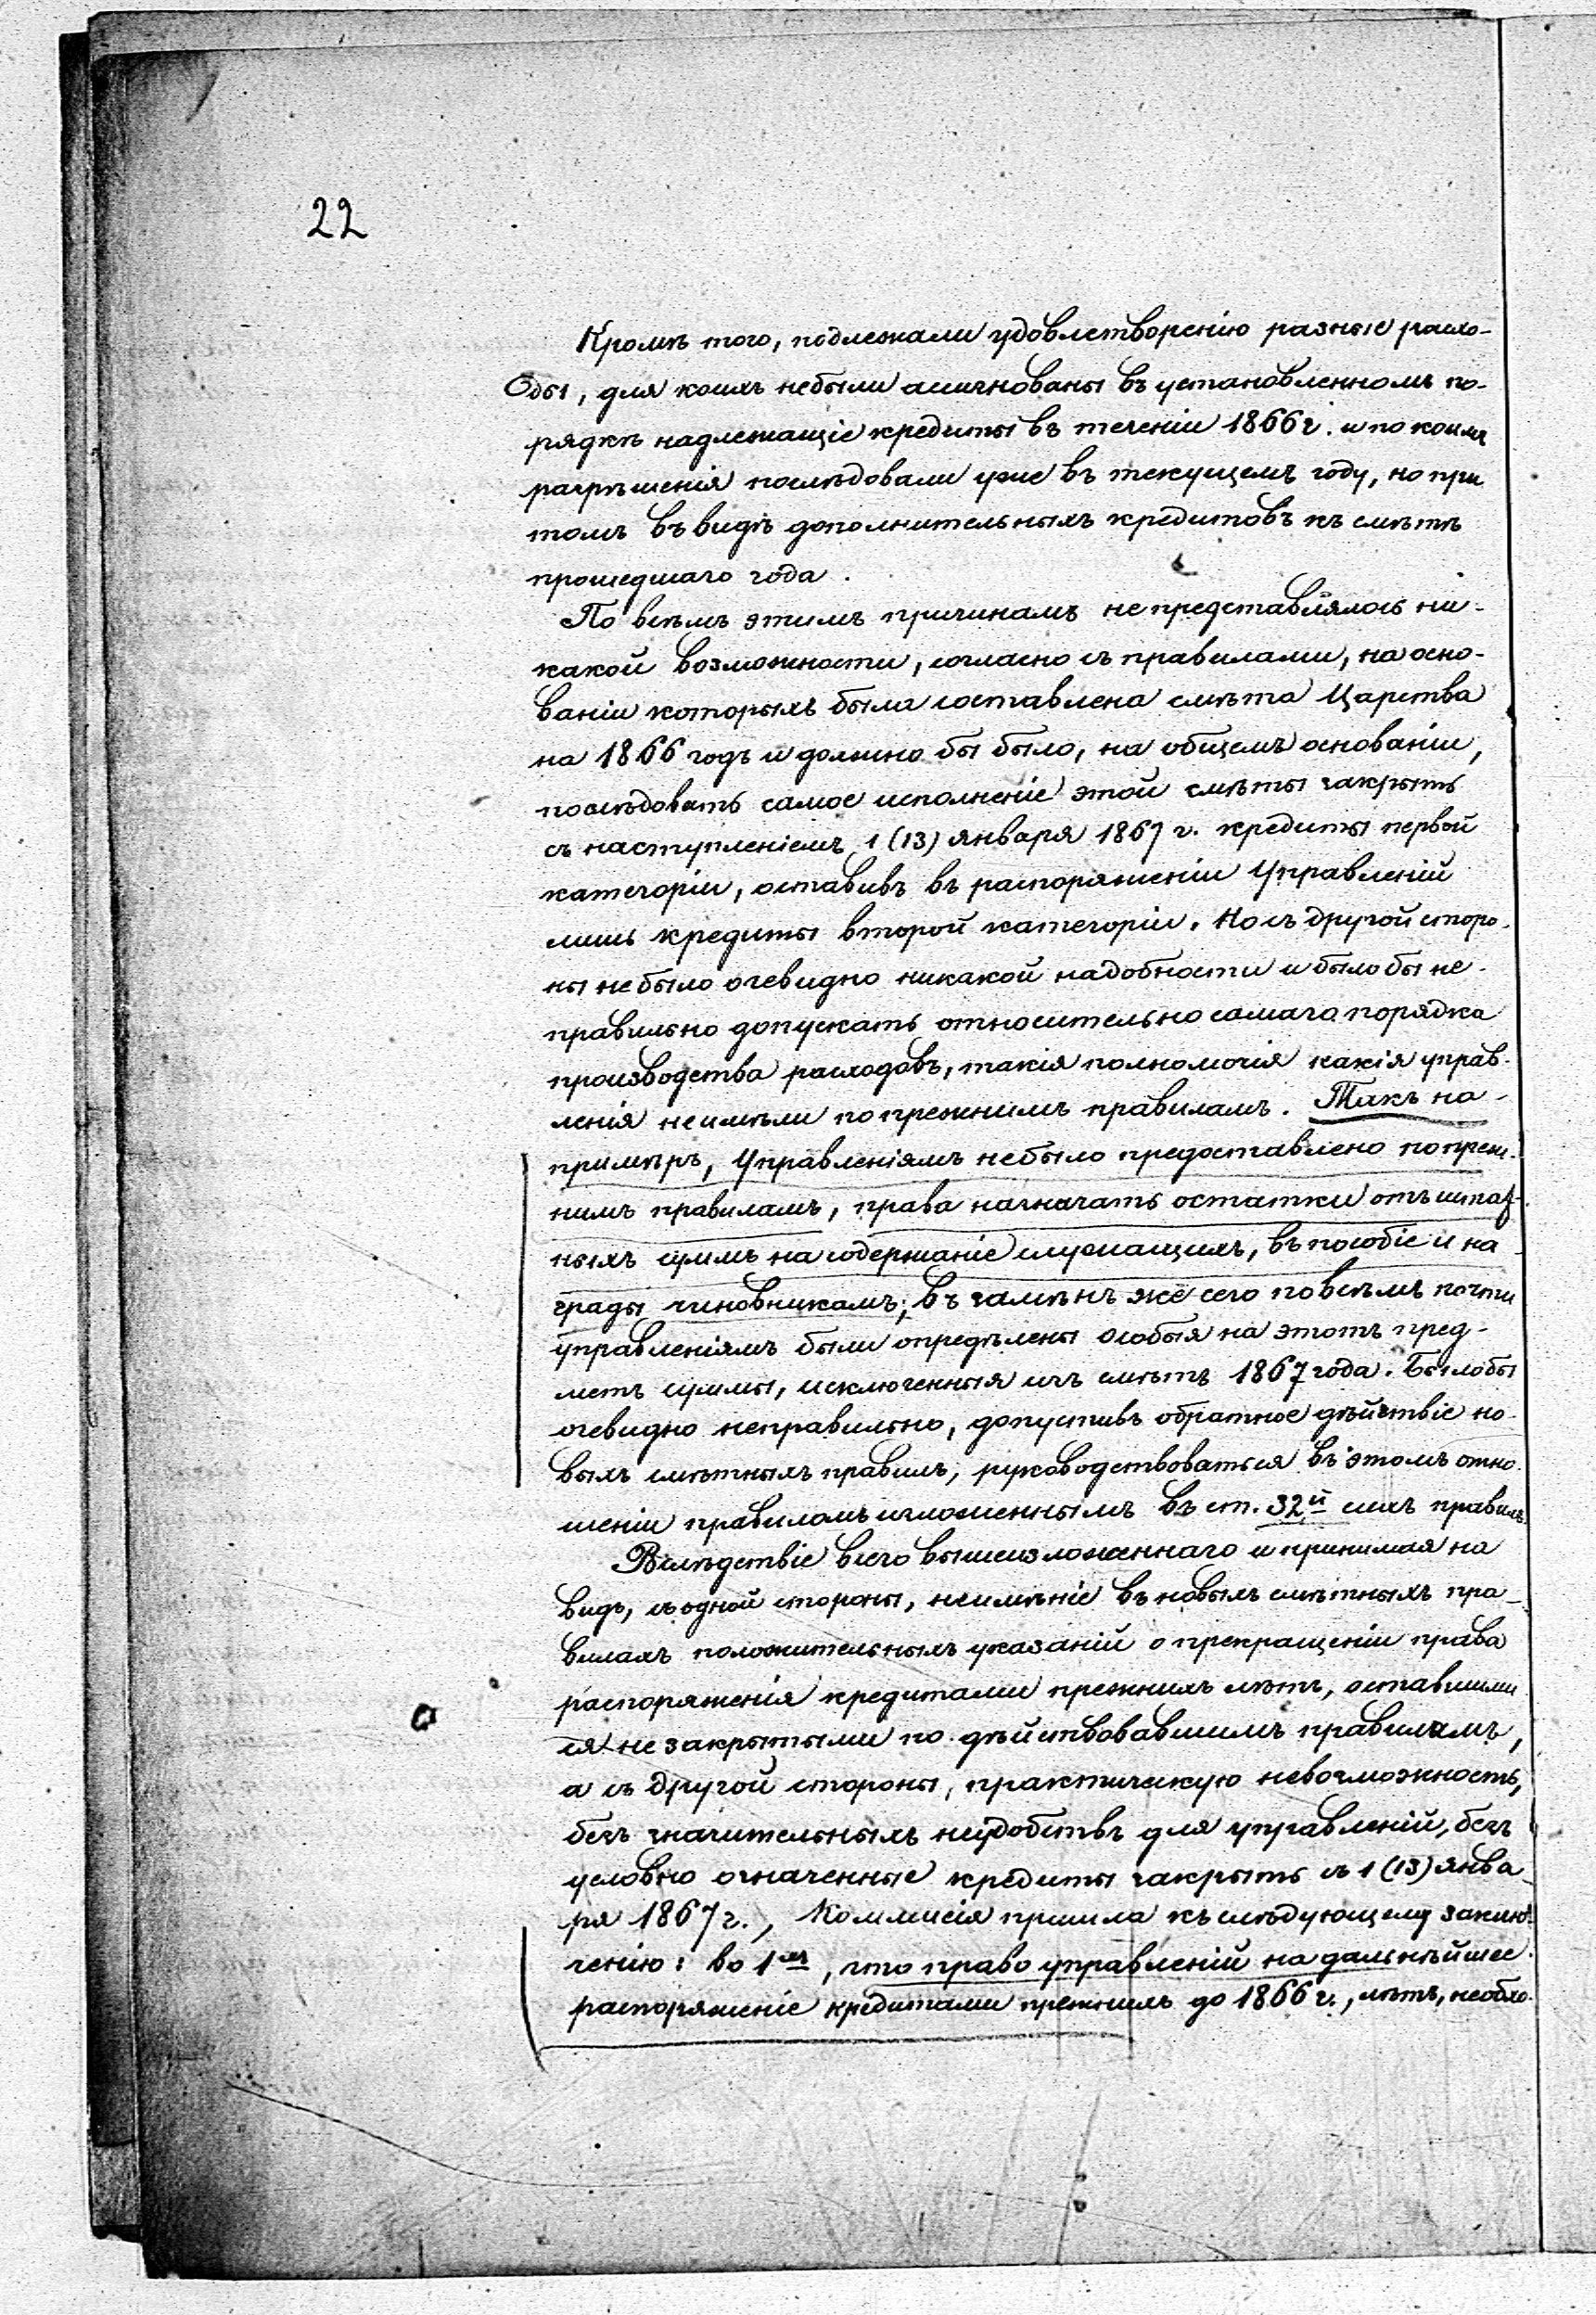 22
Кромѣ того, подлежали удовлетворенію разные расхо-
ды, для коихъ небыли ассигнованы въ установленномъ по-
рядкѣ надлежащіе кредиты въ теченіи 1866 г. и по коимъ
разрѣшенія послѣдовали уже въ текущемъ году, но при
томъ въ видѣ дополнительныхъ кредитовъ къ смѣтѣ
прошедшаго года.
По всѣмъ этимъ причинамъ не представлялось ни-
какой возможности, согласно съ правилами, на осно-
ваніи которыхъ была составлена смѣта Царства
на 1866 годъ и должно бы было, на общемъ основаніи,
послѣдовать самое исполненіе этой смѣты закрыть
съ наступленіемъ 1 (13) января 1867 г. кредиты первой
категоріи, оставивъ въ распоряженіи Управленій
лишь кредиты второй категоріи. Но съ другой сторо-
ны небыло очевидно никакой надобности и было бы не-
правильно допускать относительно самаго порядка
производства расходовъ, такія полномочія какія управ-
ленія неимѣли по прежнимъ правиламъ. Такъ на-
примѣръ, Управленіямъ небыло предоставлено по преж-
нимъ правиламъ, права назначать остатки отъ штат-
ныхъ суммъ на содержаніе служащихъ, въ пособіе и на-
грады чиновникамъ; въ замѣнъ же сего по всѣмъ почти
управленіямъ были опредѣлены особыя на этотъ пред-
метъ суммы, исключенныя изъ смѣтъ 1867 года. Было бы
очевидно неправильно, допустивъ обратное дѣйствіе но-
выхъ смѣтныхъ правилъ, руководствоваться въ этомъ отно-
шеніи правиломъ изложеннымъ въ ст. 32й сихъ правилъ.
Вслѣдствіе всего вышеизложеннаго и принимая на
видъ, съ одной стороны, неимѣніе въ новыхъ смѣтныхъ пра-
вилахъ положительныхъ указаній о прекращеніи права
распоряженія кредитами прежнихъ лѣтъ, оставшими
ся не закрытыми по дѣйствовавшимъ правиламъ,
а съ другой стороны, практическую невозможность,
безъ значительныхъ неудобствъ для управленій, безъ
условно означенные кредиты закрыть съ 1 (13) янва-
ря 1867 г., Коммисія пришла къ слѣдующему заклю-
ченію: во 1хъ, что право управленій на дальнѣйшее
распоряженіе кредитами прежнихъ до 1866 г., лѣтъ, необхо-